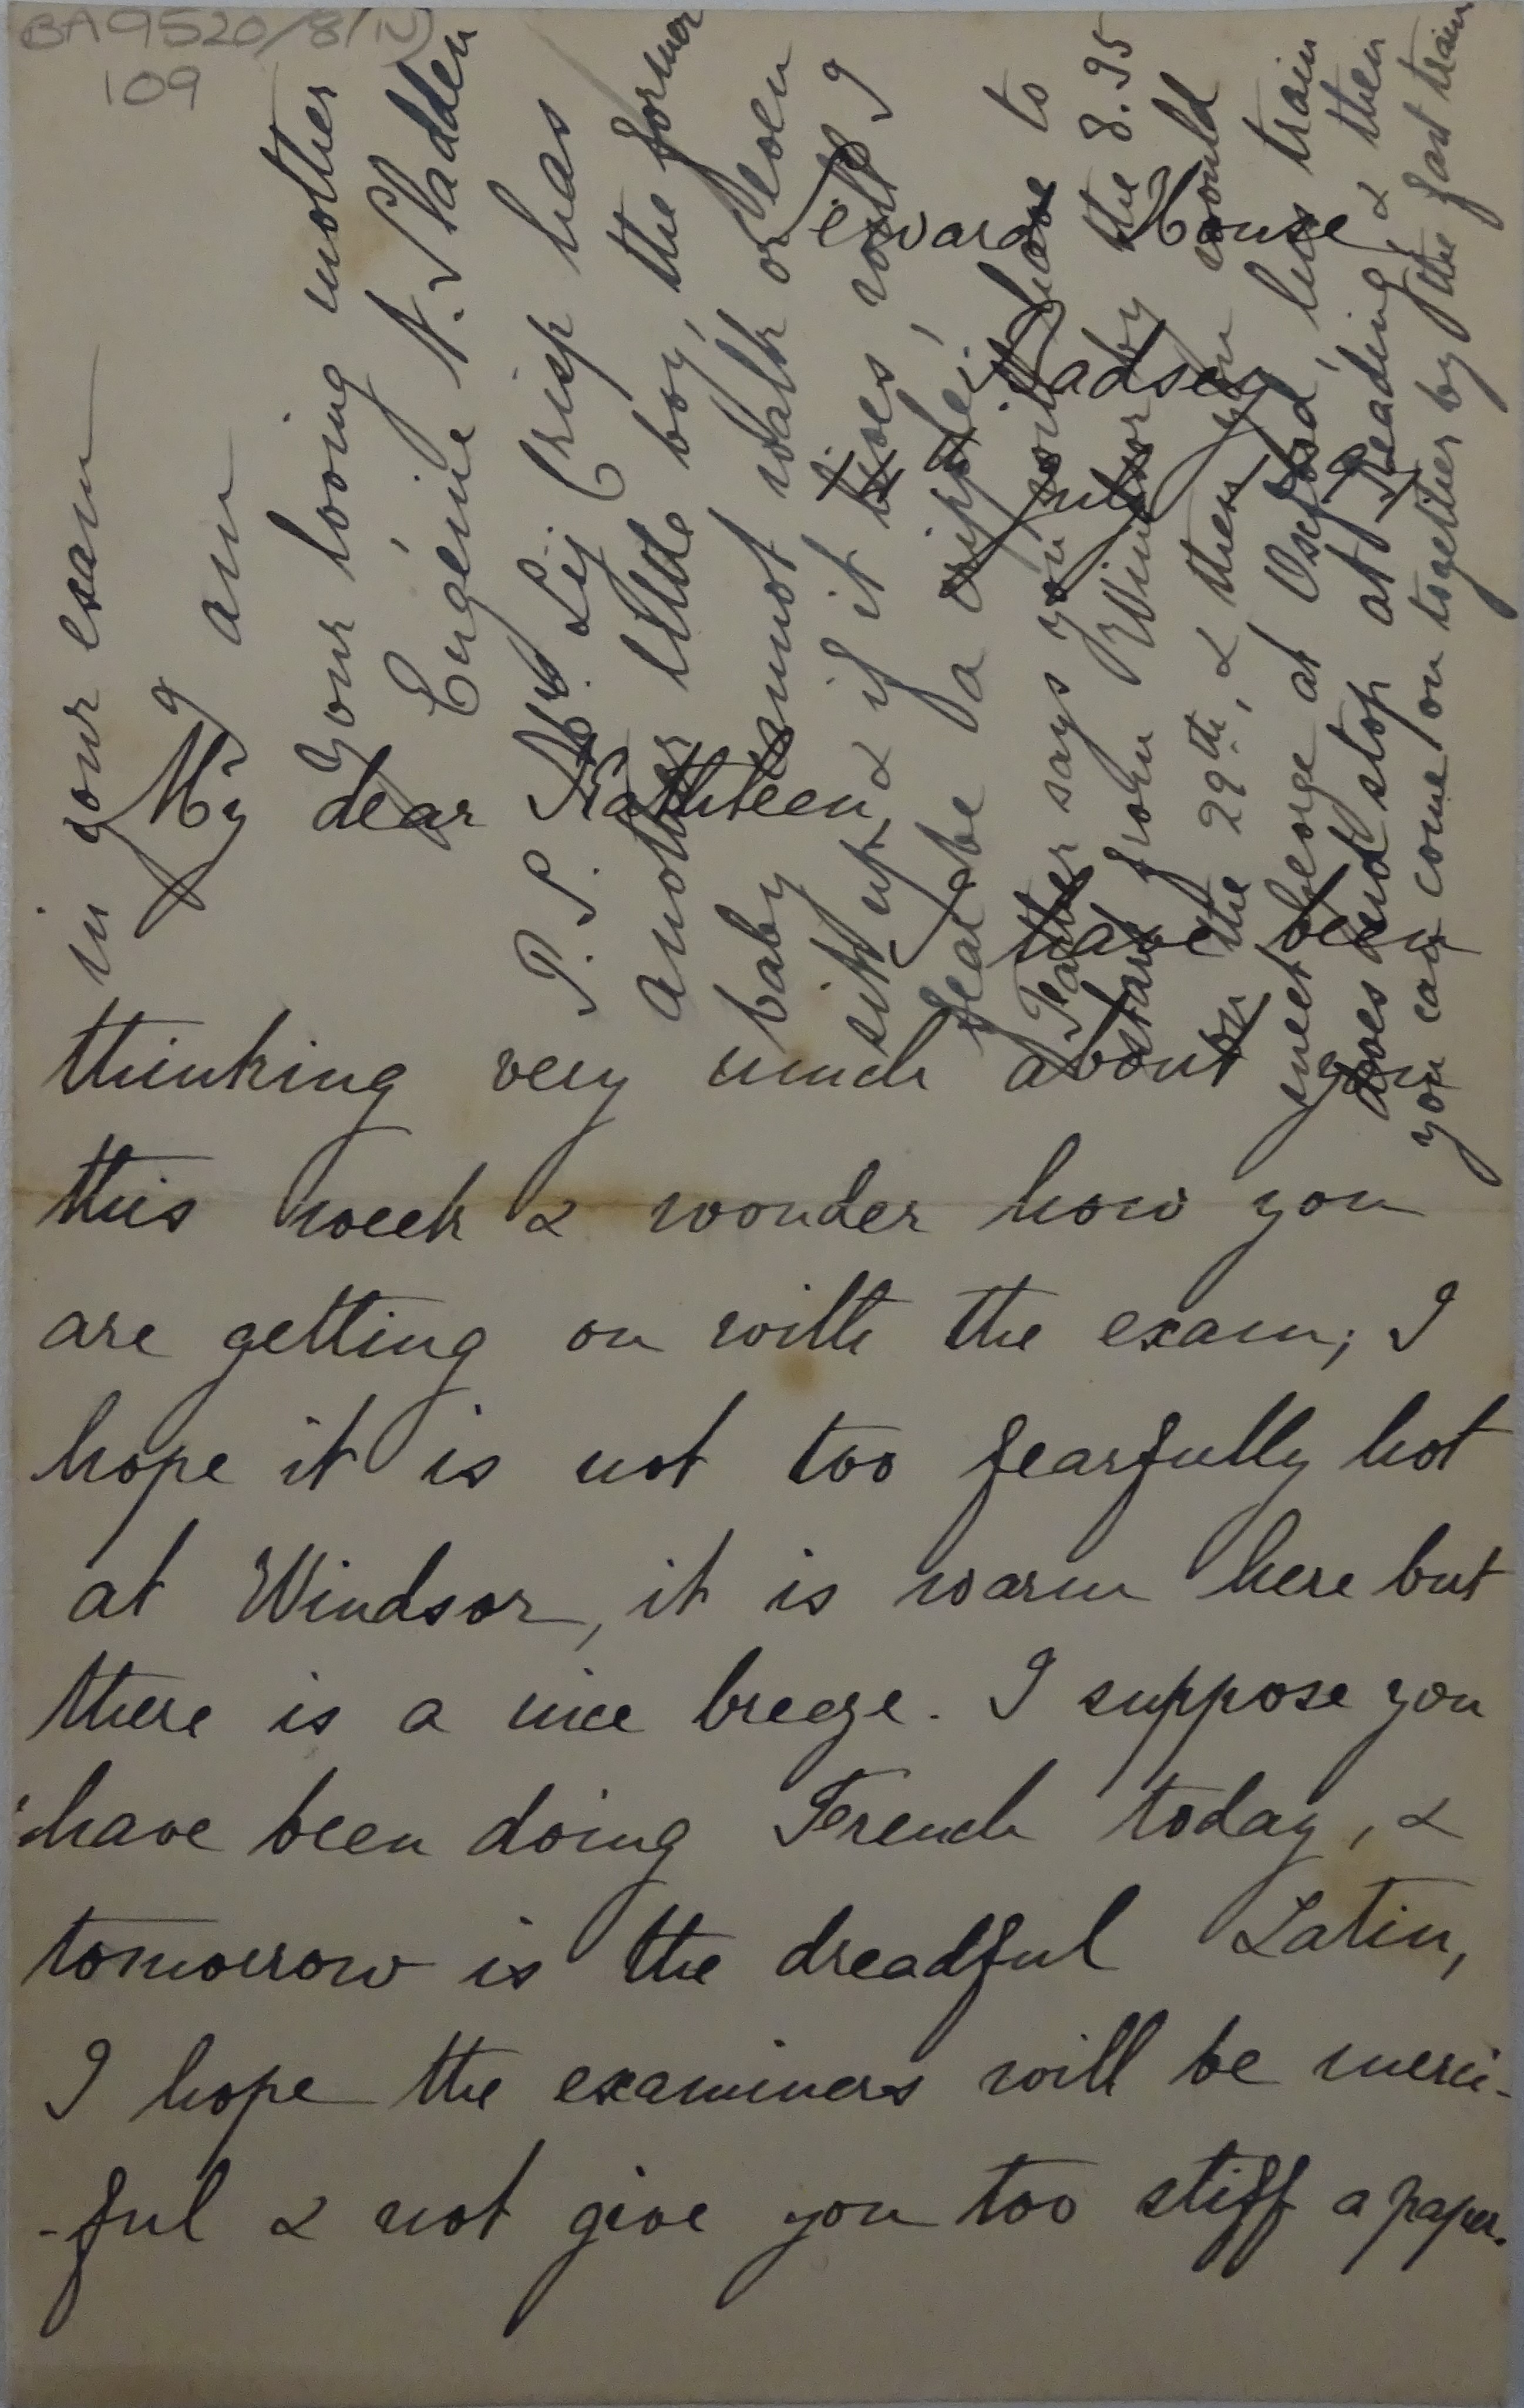 BA9520/8/(iv)
109
Seward House
Badsey
July 9th
My dear Kathleen,
I have been
thinking very much about you
this week & wonder how you
are getting on with the exam; I
hope it is not too fearfully hot
at Windsor, it is warm here but
there is a nice breeze. I suppose you
have been doing French today, &
tomorrow is the dreadful Latin,
I hope the examiners will be merci-
-ful & not give you too stiff a paper.
in your exam
I am
Your loving mother
Eugénie N. Sladden
P.S. Mrs. Lij Crisp has
another little boy, the former
baby cannot walk or even
sit up, & if it lives, will I
fear be a cripple.
Father says you will have to
start from Windsor by the 8.35
on the 29th, & then you would
meet George at Oxford, his train
does not stop at Reading, & then
you can come on together by the fast train